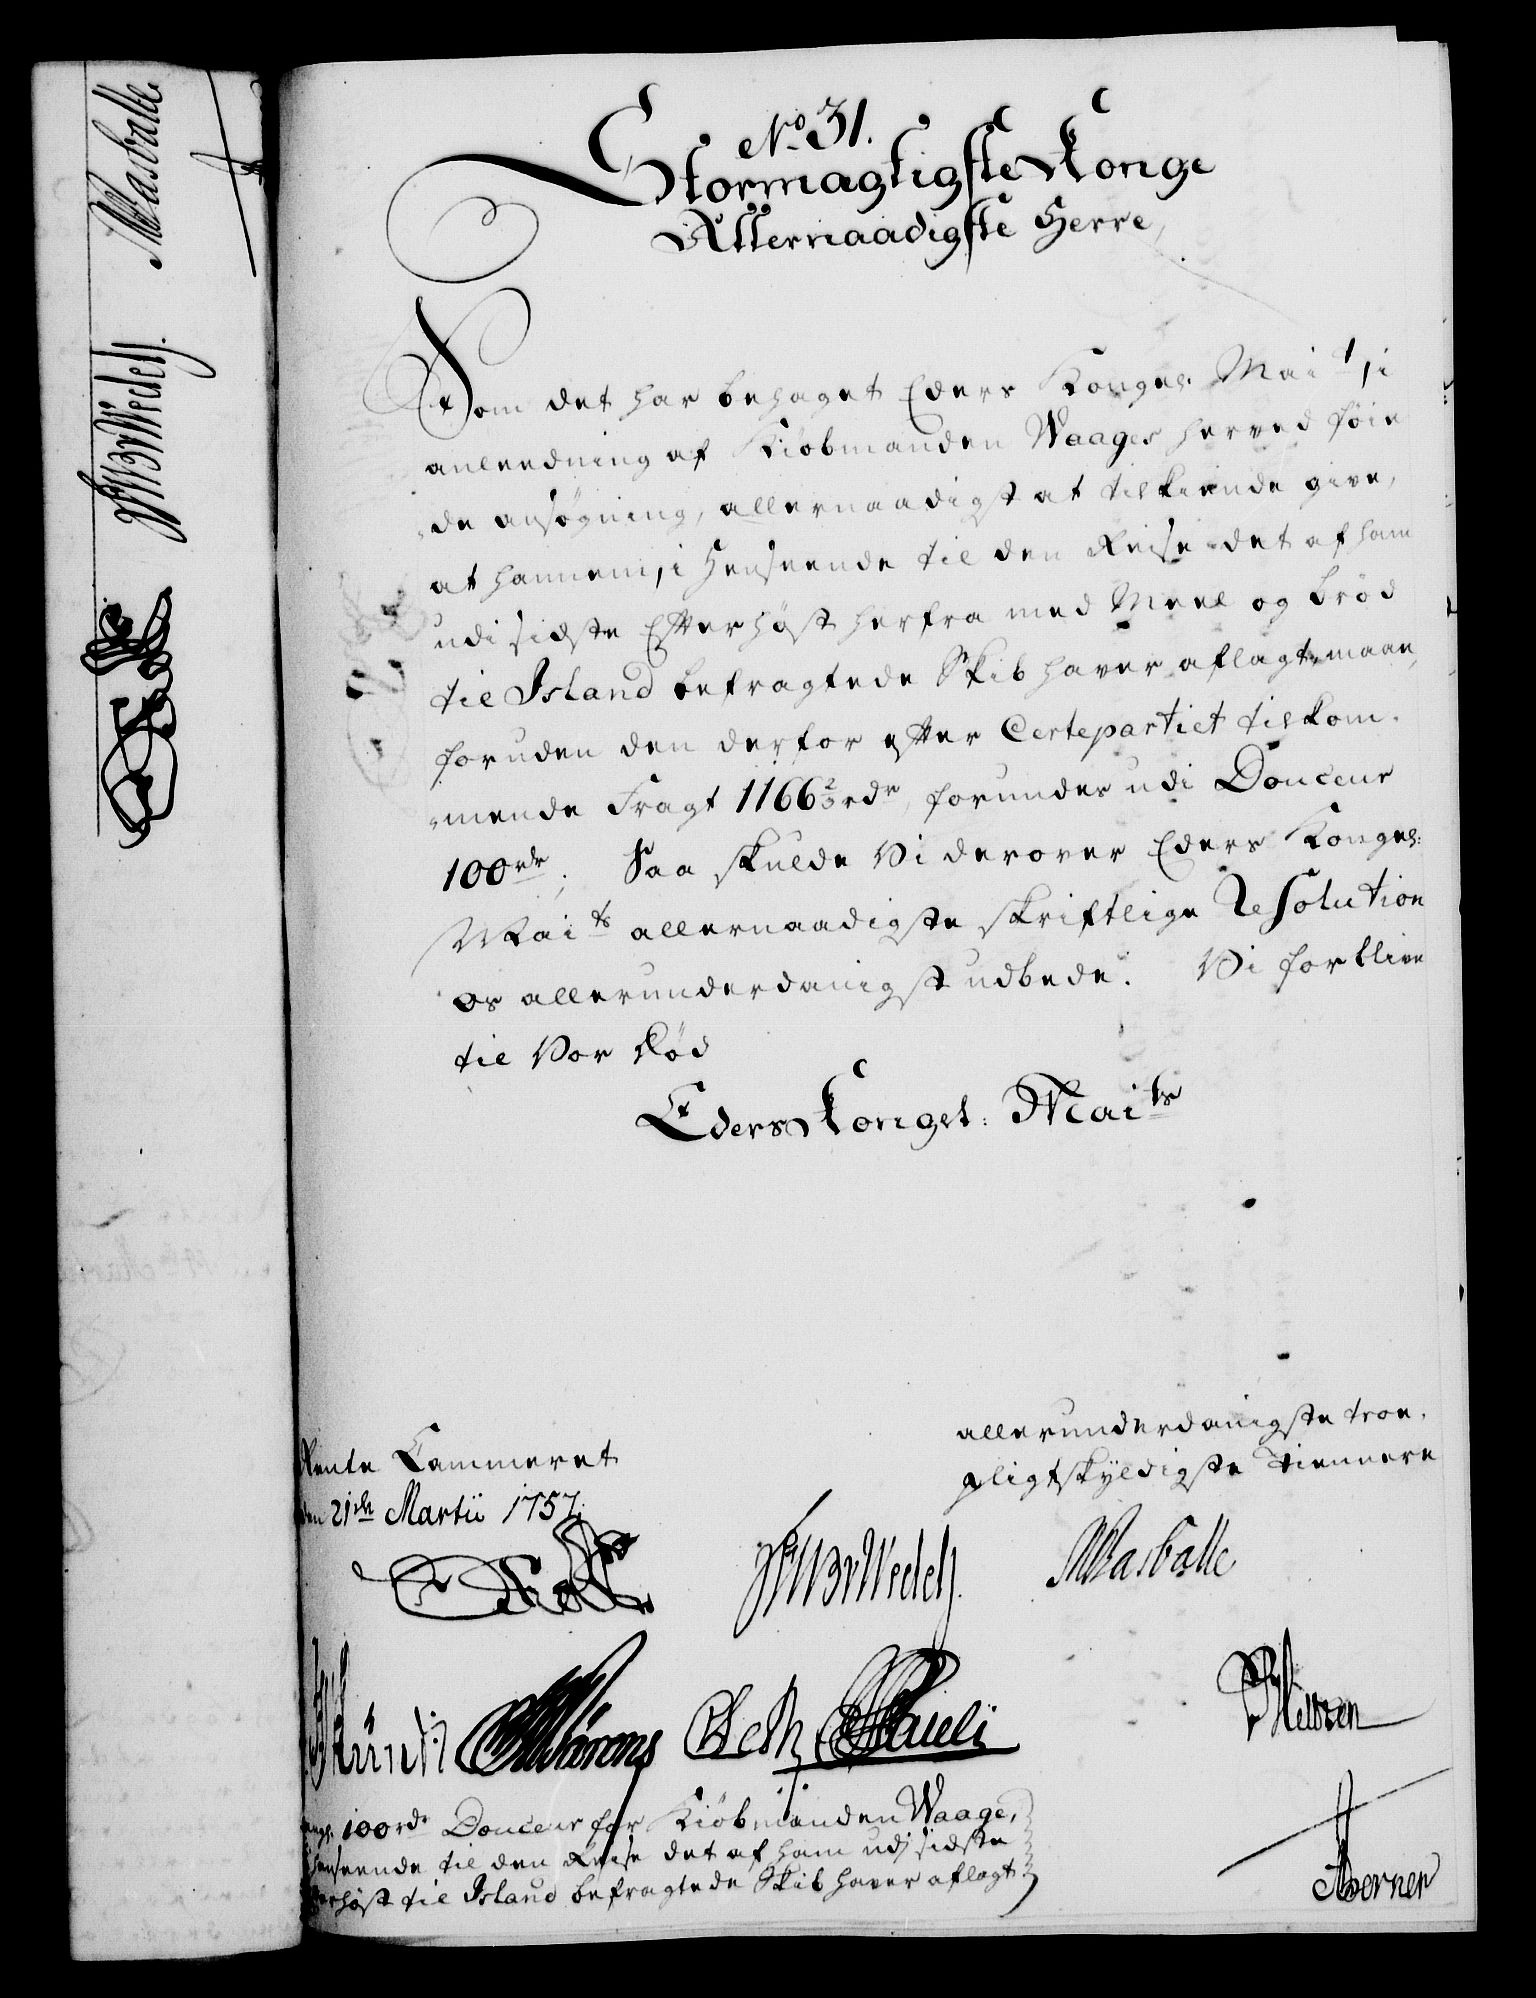 No. 31.
Stormægtigste Konge
Allernaadigste Herre,
Som det har behaget Eders Kongel. Mait, i
anleedning af Kiøbmanden Waages herved føie
de ansøgning, allernaadigst at tilkiende give,
at hannem, i Henseende til den Reise det af ham
udi sidste Efterhøst herfra med Meel og Brød
til Island befragtede Skib haver aflagt, maae,
foruden den derfor efter Certepartiet tilkom-
mende Fragt 1166 2/3 rdr, forundes udi Douceur
100 rdr; Saa skulde Vi derover Eders Kongel:
Maits allernaadigste skriftlige Resolution
os allerunderdanigst udbede. Vi forblive
til Vor Død
Eders Kongel: Maits
allerunderdanigste troe,
pligtskyldigste Tiennere
Rente Cammeret
den 21de Martii 1757.
Wedel
Wasballe
Pauli
100 rdr Douceur for Kiøbmanden Waage,
Henseende til den Reise det af ham udj sidste
Efterhøst til Island befragtede Skib haver aflagt
Wasballe
Wedel